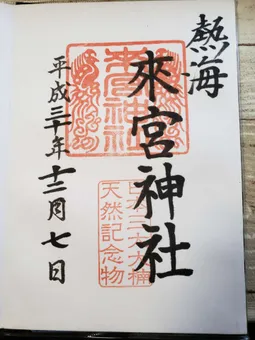 熱海
來宮神社
平成三十年十二月七日
來宮神社
天然記念物